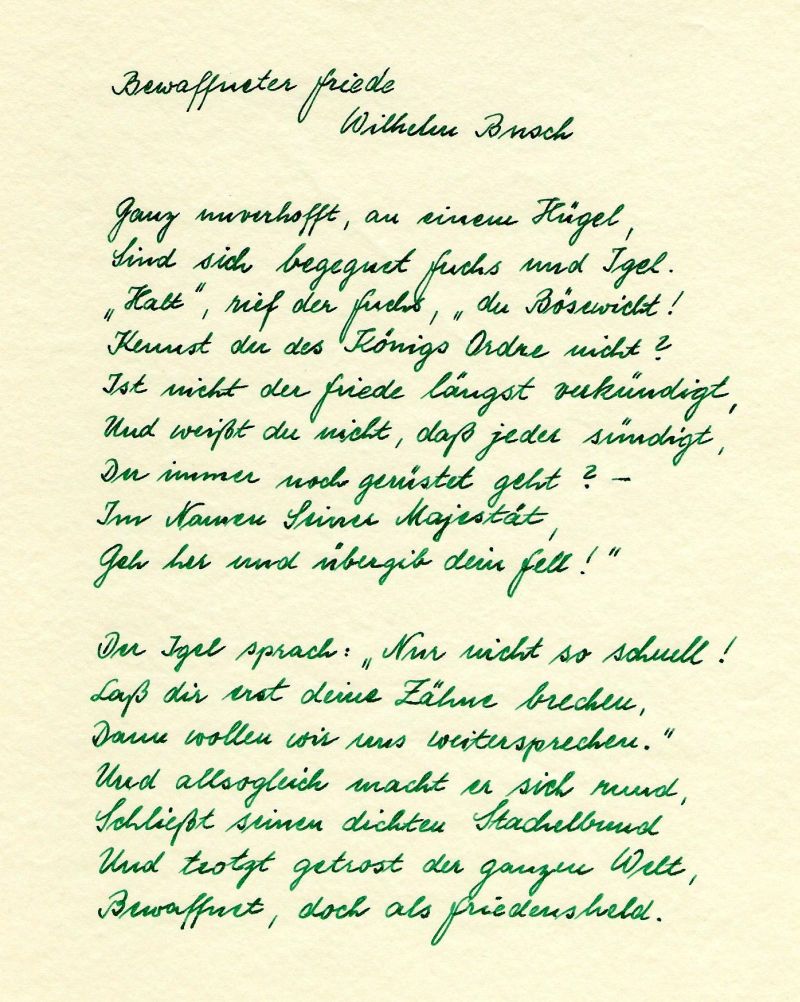 Bewaffneter Friede
Wilhelm Busch
Ganz unverhofft, an einem Hügel,
Sind sich begegnet Fuchs und Igel.
„Halt“, rief der Fuchs, „du Bösewicht!
Kennst du des Königs Ordre nicht?
Ist nicht der Friede längst verkündigt,
Und weißt du nicht, daß jeder sündigt,
Der immer noch gerüstet geht? –
Im Namen Seiner Majestät,
Geh her und übergib dein Fell!“
Der Igel sprach: „Nur nicht so schnell!
Laß dir erst deine Zähne brechen,
Dann wollen wir uns weitersprechen.“
Und allsogleich macht er sich rund,
Schließt seinen dichten Stachelbund
Und trotzt getrost der ganzen Welt,
Bewaffnet, doch als Friedensheld.